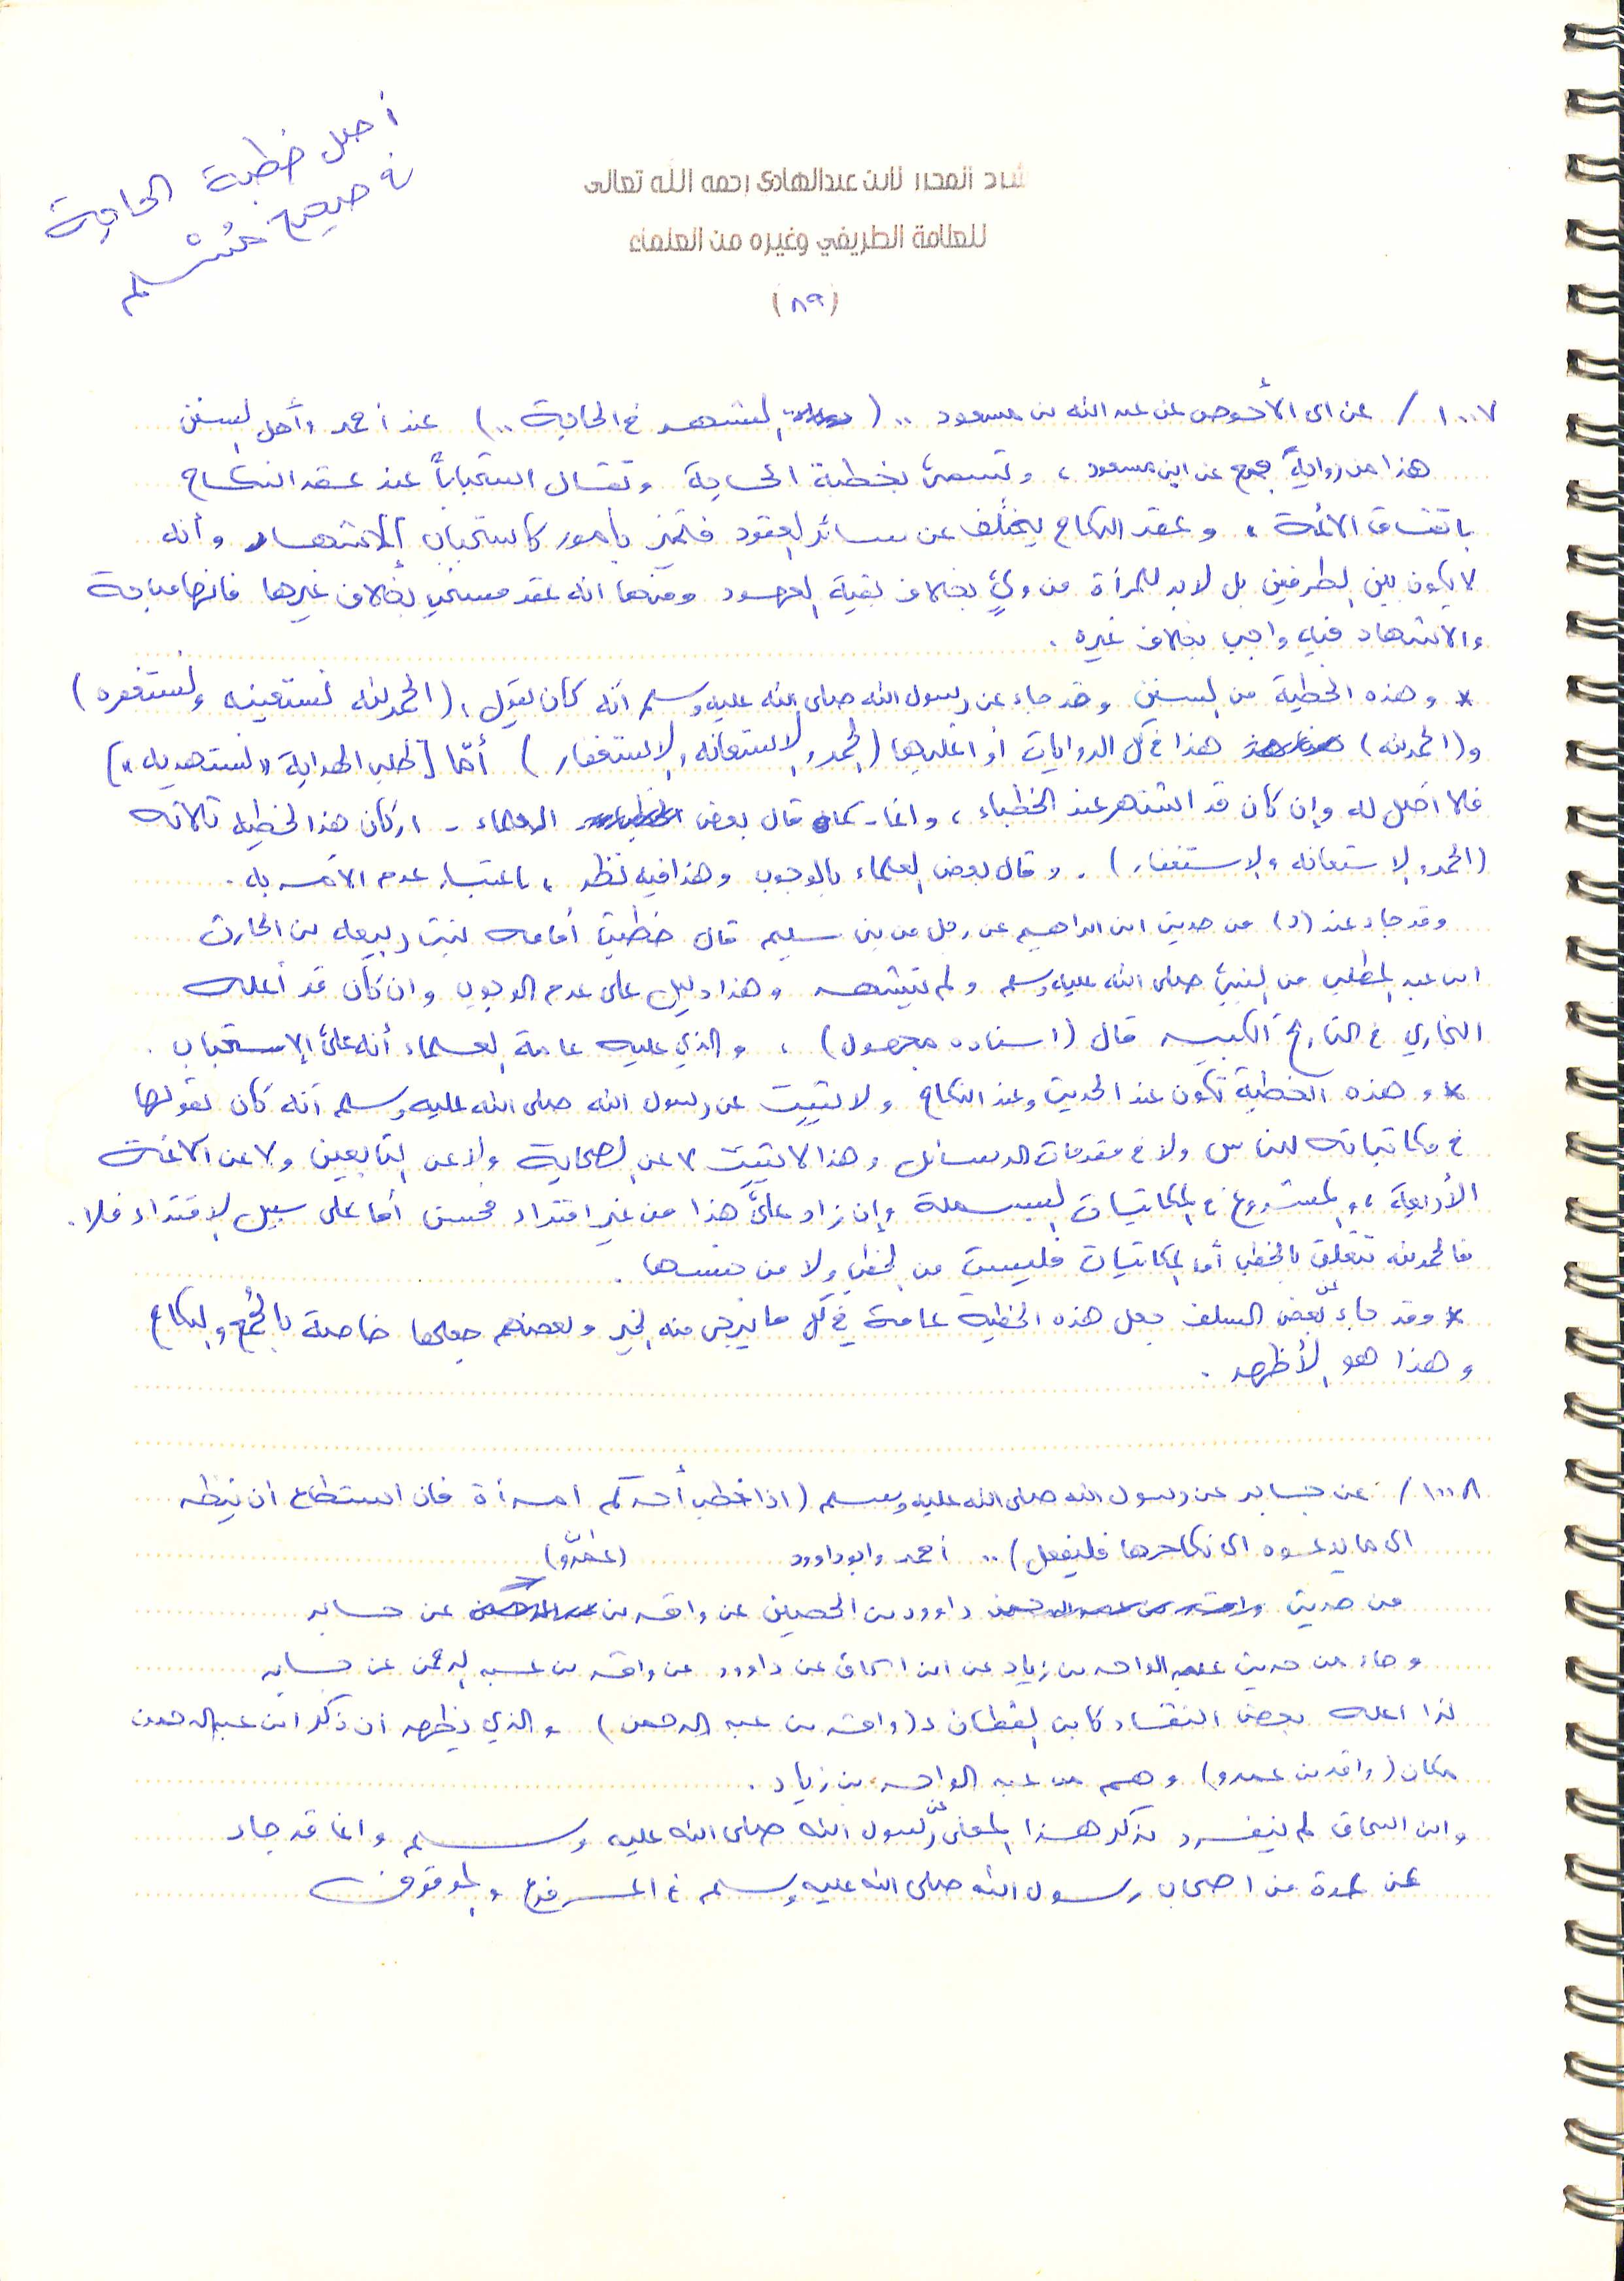 أصل خطبة الحاجة
في صحيح مُسْلم
شاد المحرر لابن عبدالهادي رحمه الله تعالى
للعلامة الطريفي وغيره من العلماء
(٨٩)
١٠٠٧/ عن أبي الأحوص عن عبد الله بن مسعود .. ( التشهد في الحاجة .. ) عند أحمد وأهل السنن
هذا من رواية جمع عن ابن مسعود ، وتسمى بخطبة الحاجة وتقال استحباباً عند عقد النكاح
باتفاق الأئمة ، وعقد النكاح يختلف عن سائر العقود فتميز بأمور كاستحباب الاشهاد وأنه
لا يكون بين الطرفين بل لابد للمرأة من وليّ بخلاف بقية العهود ومنها انه عقد مستحب بخلاف غيرها فانها مباحة
والاشهاد فيه واجب بخلاف غيره .
* وهذه الخطبة من السنن وقد جاء عن رسول الله صلى الله عليه وسلم أنه كان يقول : (الحمد لله نستعينه ونستغفره)
و(الحمد لله) هذا في كل الروايات أو اغلبها (الحمد والاستعانه والاستغفار) أمّا [طلب الهداية «نستهديه»]
فلا أصل له وإن كان قد اشتهر عند الخطباء ، وانما - كما قال بعض العلماء - اركان هذه الخطبه ثلاثه
(الحمد والاستعانه والاستغفار) . وقال بعض العلماء بالوجوب وهذا فيه نظر ، باعتبار عدم الأمر به .
وقد جاء عند (د) من حديث ابن ابراهيم عن رجل من بني سليم قال خطبت أمامه بنت ربيعه بن الحارث
ابن عبد المطلب من النبي صلى الله عليه وسلم ولم يتشهد وهذا دليل على عدم الوجوب وان كان قد أعله
البخاري في التاريخ الكبير قال (اسناده مجهول) ، والذي عليه عامة العلماء أنه على الاستحباب .
* وهذه الخطبة تكون عند الحديث وعند النكاح ولا يثبت عن رسول الله صلى الله عليه وسلم أنه كان يقولها
في مكاتباته للناس ولا في مقدمات الرسائل وهذا لا يثبت لا عن الصحابة ولا عن التابعين ولا عن الأئمة
الأربعة ، والمشروع في المكاتبات البسملة وإن زاد على هذا من غير اقتداء فحسن أما على سبيل الاقتداء فلا .
فالحمد لله تتعلق بالخطب أما المكاتبات فليست من الخطب ولا من جنسها .
* وقد جاء عن بعض السلف جعل هذه الخطبه عامة في كل ما يرجى منه الخير وبعضهم جعلها خاصة بالجُمع والنكاح
وهذا هو الأظهر .
١٠٠٨/ عن جابر عن رسول الله صلى الله عليه وسلم (اذا خطب أحدكم امرأة فان استطاع ان ينظر
الى ما يدعوه الى نكاحها فليفعل) .. أحمد وابو داوود
(عمرو)
من حديث داوود بن الحصين عن واقد بن عن جابر
وجاء من حديث عبد الواحد بن زياد عن ابن اسحاق عن داوود عن واقد بن عبد الرحمن عن جابر
لذا اعله بعض النقاد كابن القطان د (واقد بن عبد الرحمن) والذي يظهر أن ذكر ابن عبد الرحمن
مكان (واقد بن عمرو) وهم من عبد الواحد بن زياد .
وابن اسحاق لم ينفرد بذكر هذا المعنى عن رسول الله صلى الله عليه وسلم وانما قد جاء
عن عدة من اصحاب رسول الله صلى الله عليه وسلم في المرفوع والموقوف